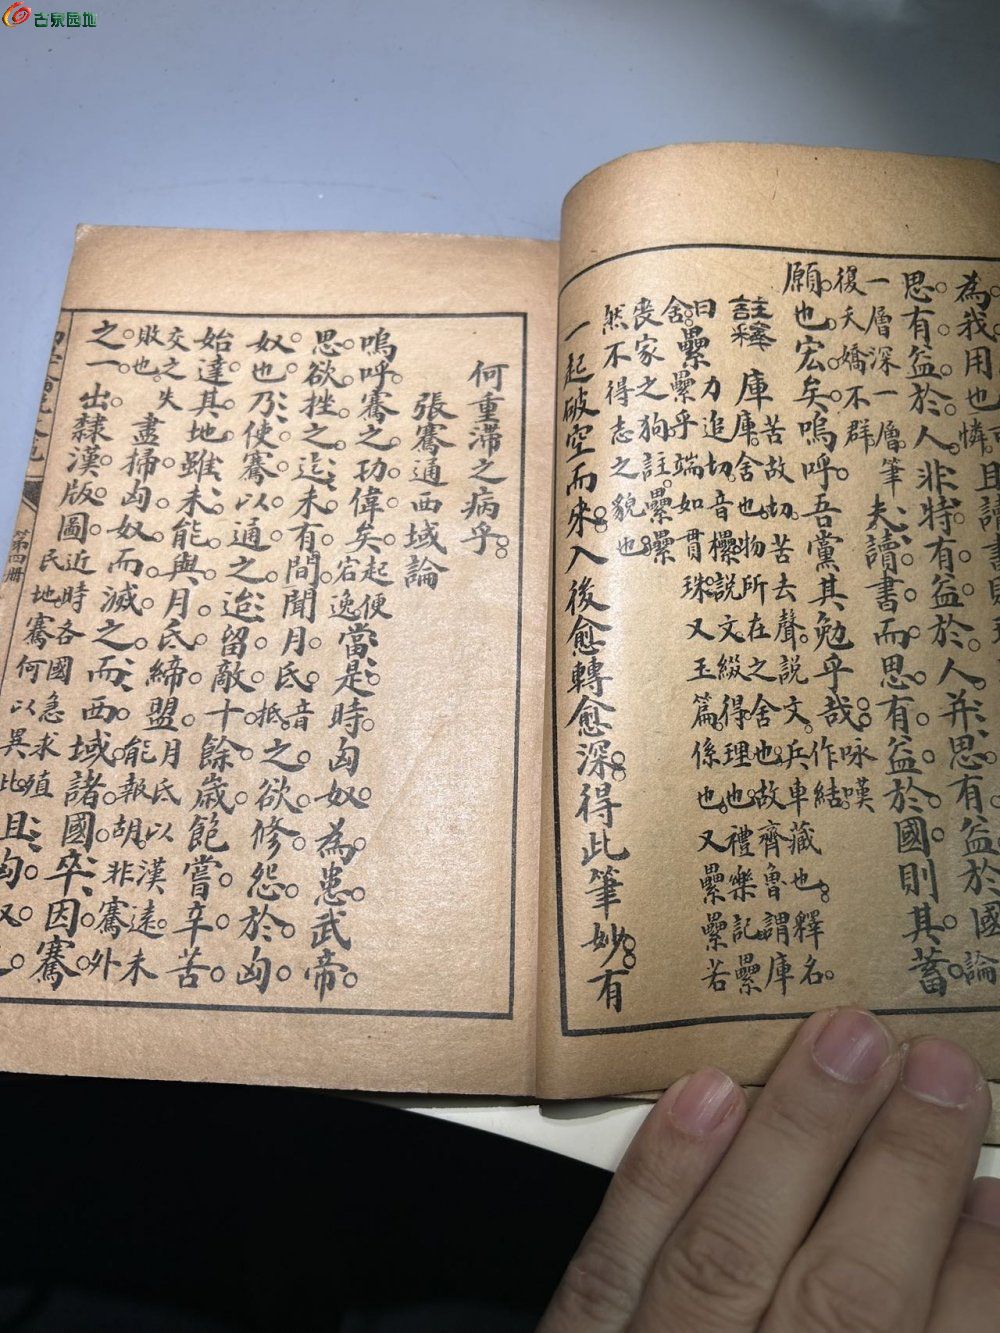 古泉园地
為我用也
思有益於人非特有益於人并思有益於國論
一層深一層筆夫讀書而思有益於國則其蓄
復夭嬌不群
願也宏矣嗚呼吾黨其勉乎哉咏嘆作結
註釋
庫苦故切苦去聲說文兵車藏也釋名
庫舍也物所在之舍也故齊魯謂庫
曰舍
纍力追切音欙說文綴得理也禮樂記纍
纍乎端如貫珠又玉篇係也又纍纍若
喪家之狗註纍纍
然不得志之貌也
一起破空而來入後愈轉愈深得此筆妙有
何重滯之病乎
張騫通西域論
嗚呼騫之功偉矣起便宕逸當是時匈奴為患武帝
思欲挫之迄未有間聞月氐音抵之欲修怨於匈
奴也乃使騫以通之迨留敵十餘歲飽嘗辛苦
始達其地雖未能與月氐締盟月氐以漢遠未
能報胡非騫外
交之失
敗也
盡掃匈奴而滅之而西域諸國卒因騫
之一出隸漢版圖近時各國急求殖
民地騫何以異此
且匈奴
第四册